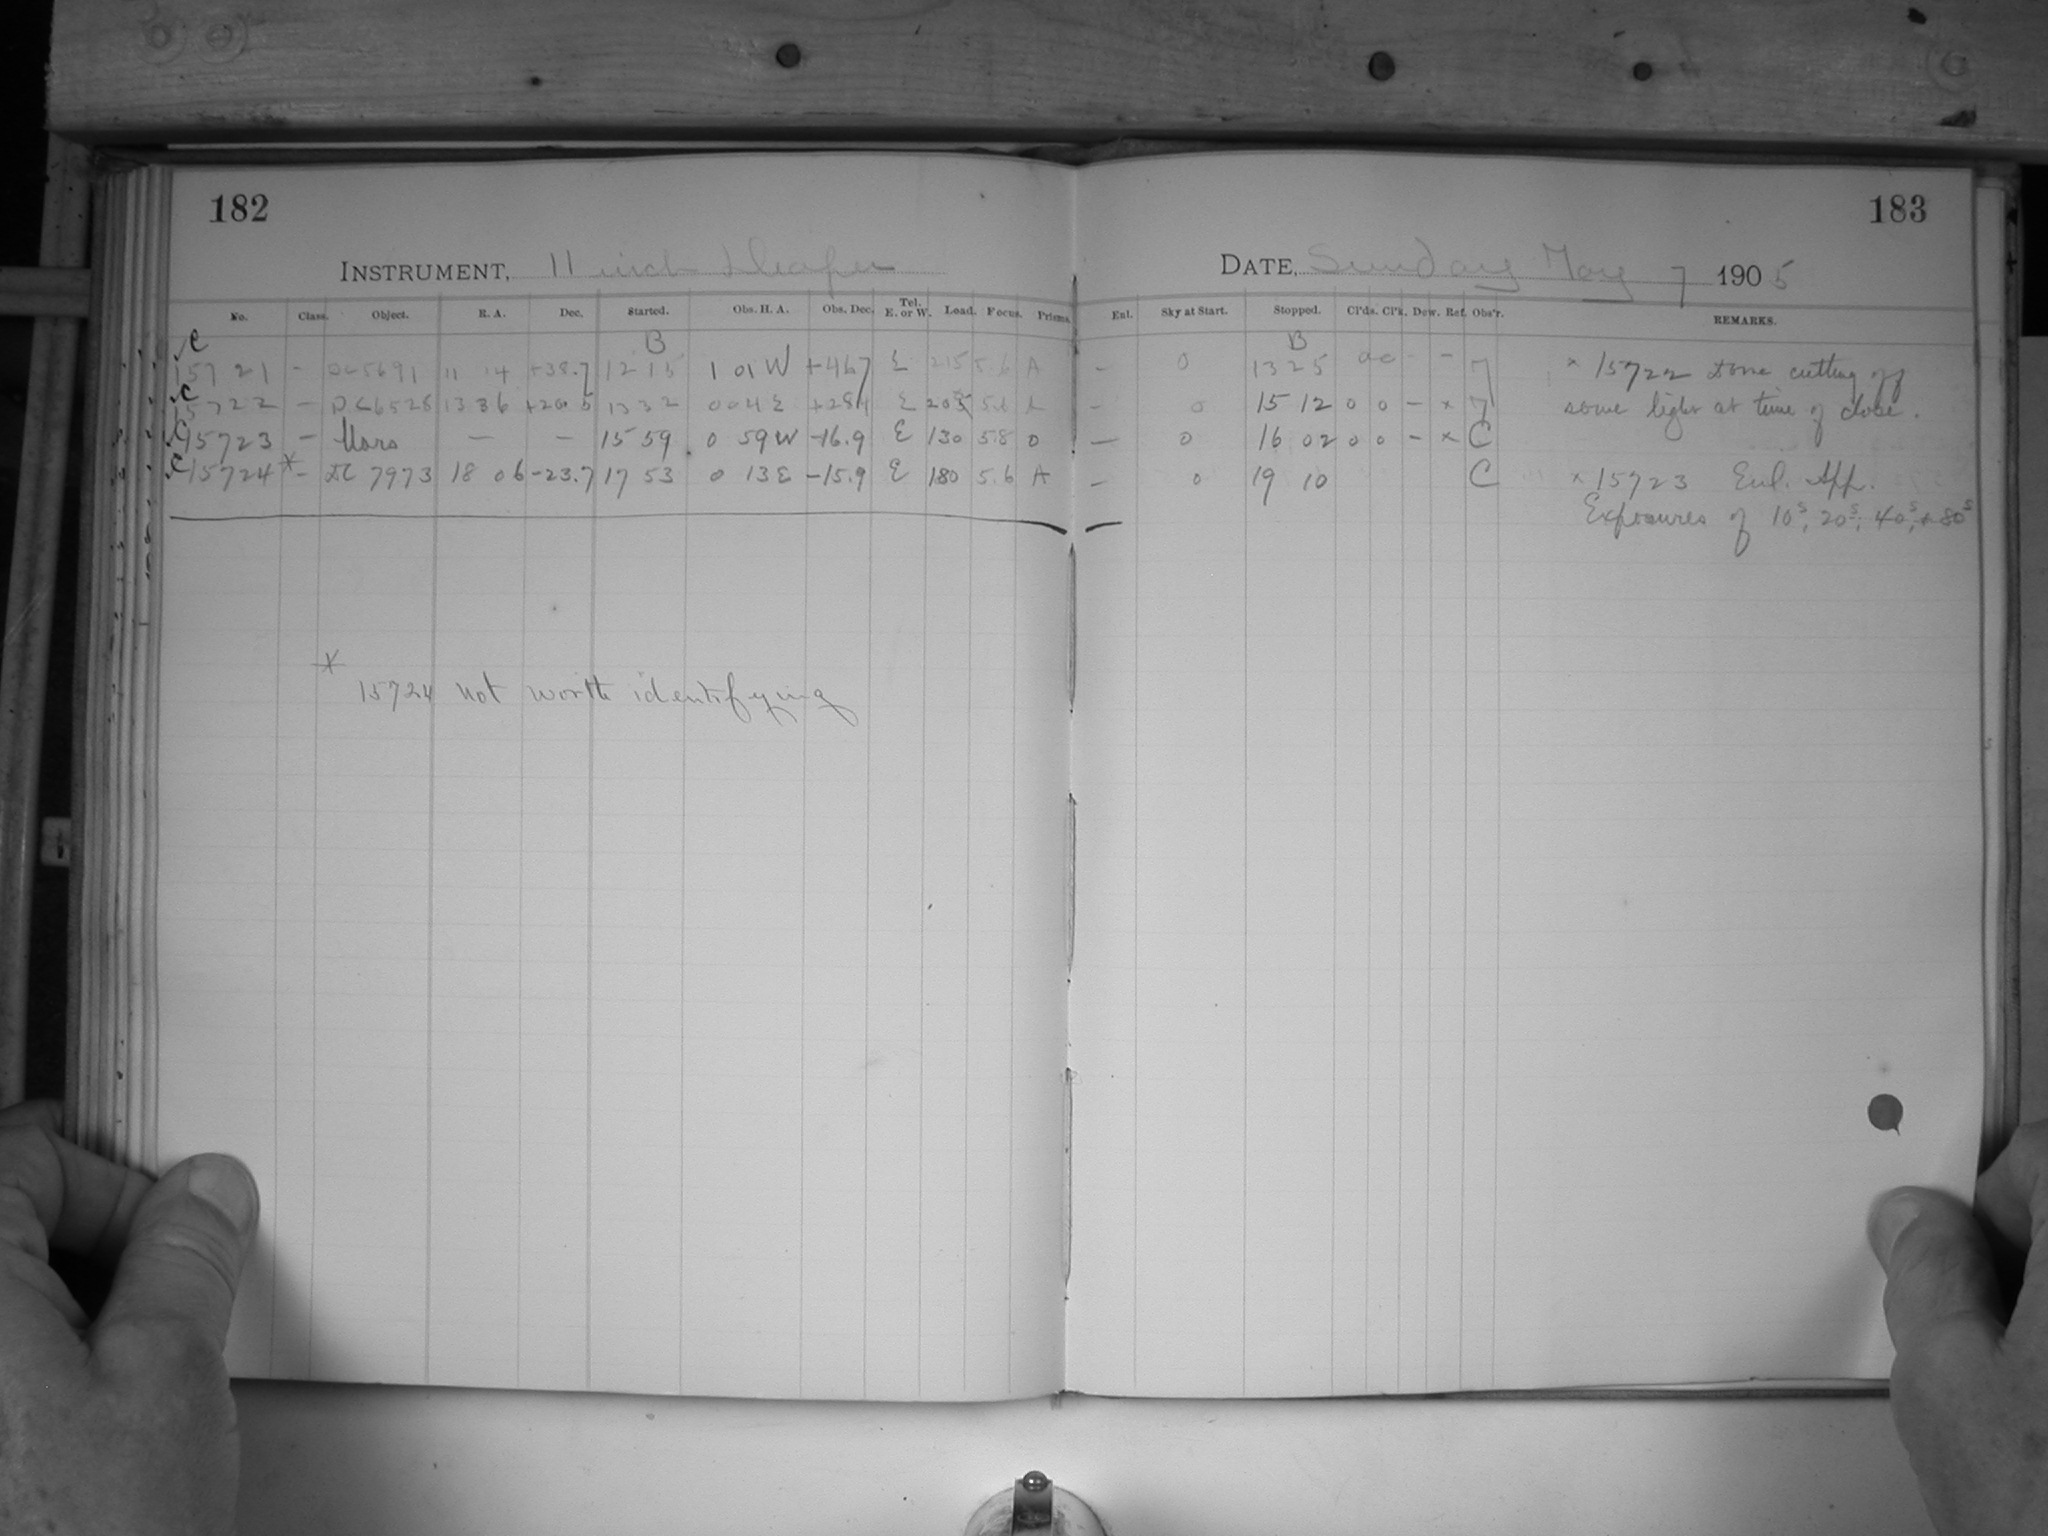 182
INSTRUMENT, 11 inch Draper
No. Class. Object. R. A. Dec. Started. Obs. H. A. Obs. Dec. Tel. E. or W. Load. Focus. Prisms.
B
C 15721 - DC5691 11 14 +38.7 12 15 1 01 W +46.7 E 215 5.6 A
C 15722 - DC6528 13 36 +20.5 13 32 0 04 E +28.1 E 205 5.6 A
C 15723 - Mars — — 15 59 0 59 W -16.9 E 130 5.8 0
C 15724 * - DC 7973 18 06 -23.7 17 53 0 13 E -15.9 E 180 5.6 A
*
15724 not worth identifying
183
DATE, Sunday May 7 1905
Enl. Sky at Start. Stopped. Cl'ds. Cl'k. Dew. Ref. Obs'r. REMARKS.
B
- 0 13 25 0 0 - - 7 * 15722 Dome cutting off
- 0 15 12 0 0 - x 7 some light at time of close.
— 0 16 02 0 0 - x C
- 0 19 10 C x 15723 Enl. App.
Exposures of 10s, 20s, 40s, + 80s